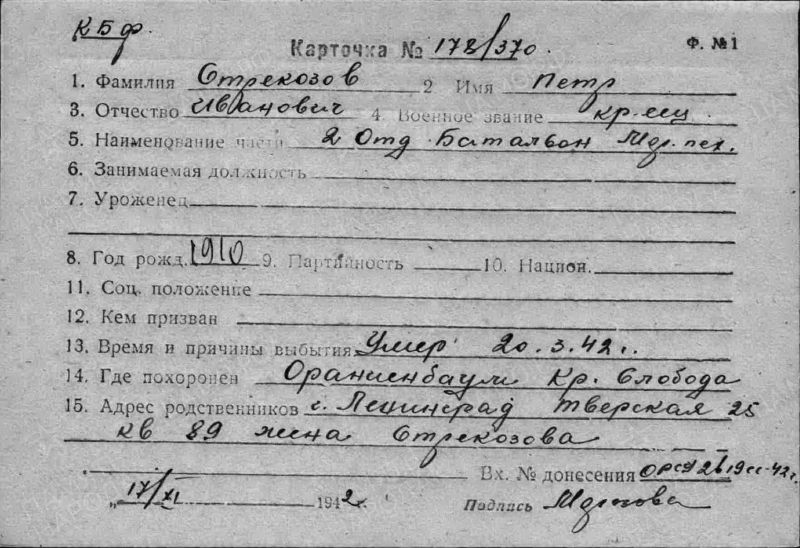 КБФ.
Карточка № 178/370. Ф. №1
1. Фамилия Стрекозов 2. Имя Петр
3. Отчество Иванович 4. Военное звание кр-ец
5. Наименование части 2 Отд Батальон Мор. пех.
6. Занимаемая должность
7. Уроженец
8. Год рожд. 1910 9. Партийность 10. Национ.
11. Соц. положение
12. Кем призван
13. Время и причины выбытия Умер 20.3.42 г.
14. Где похоронен Ораниенбаум Кр. Слобода
15. Адрес родственников г. Ленинград Тверская 25
кв 89 жена Стрекозова
Вх. № донесения
„17/XI 1942 г. Подпись